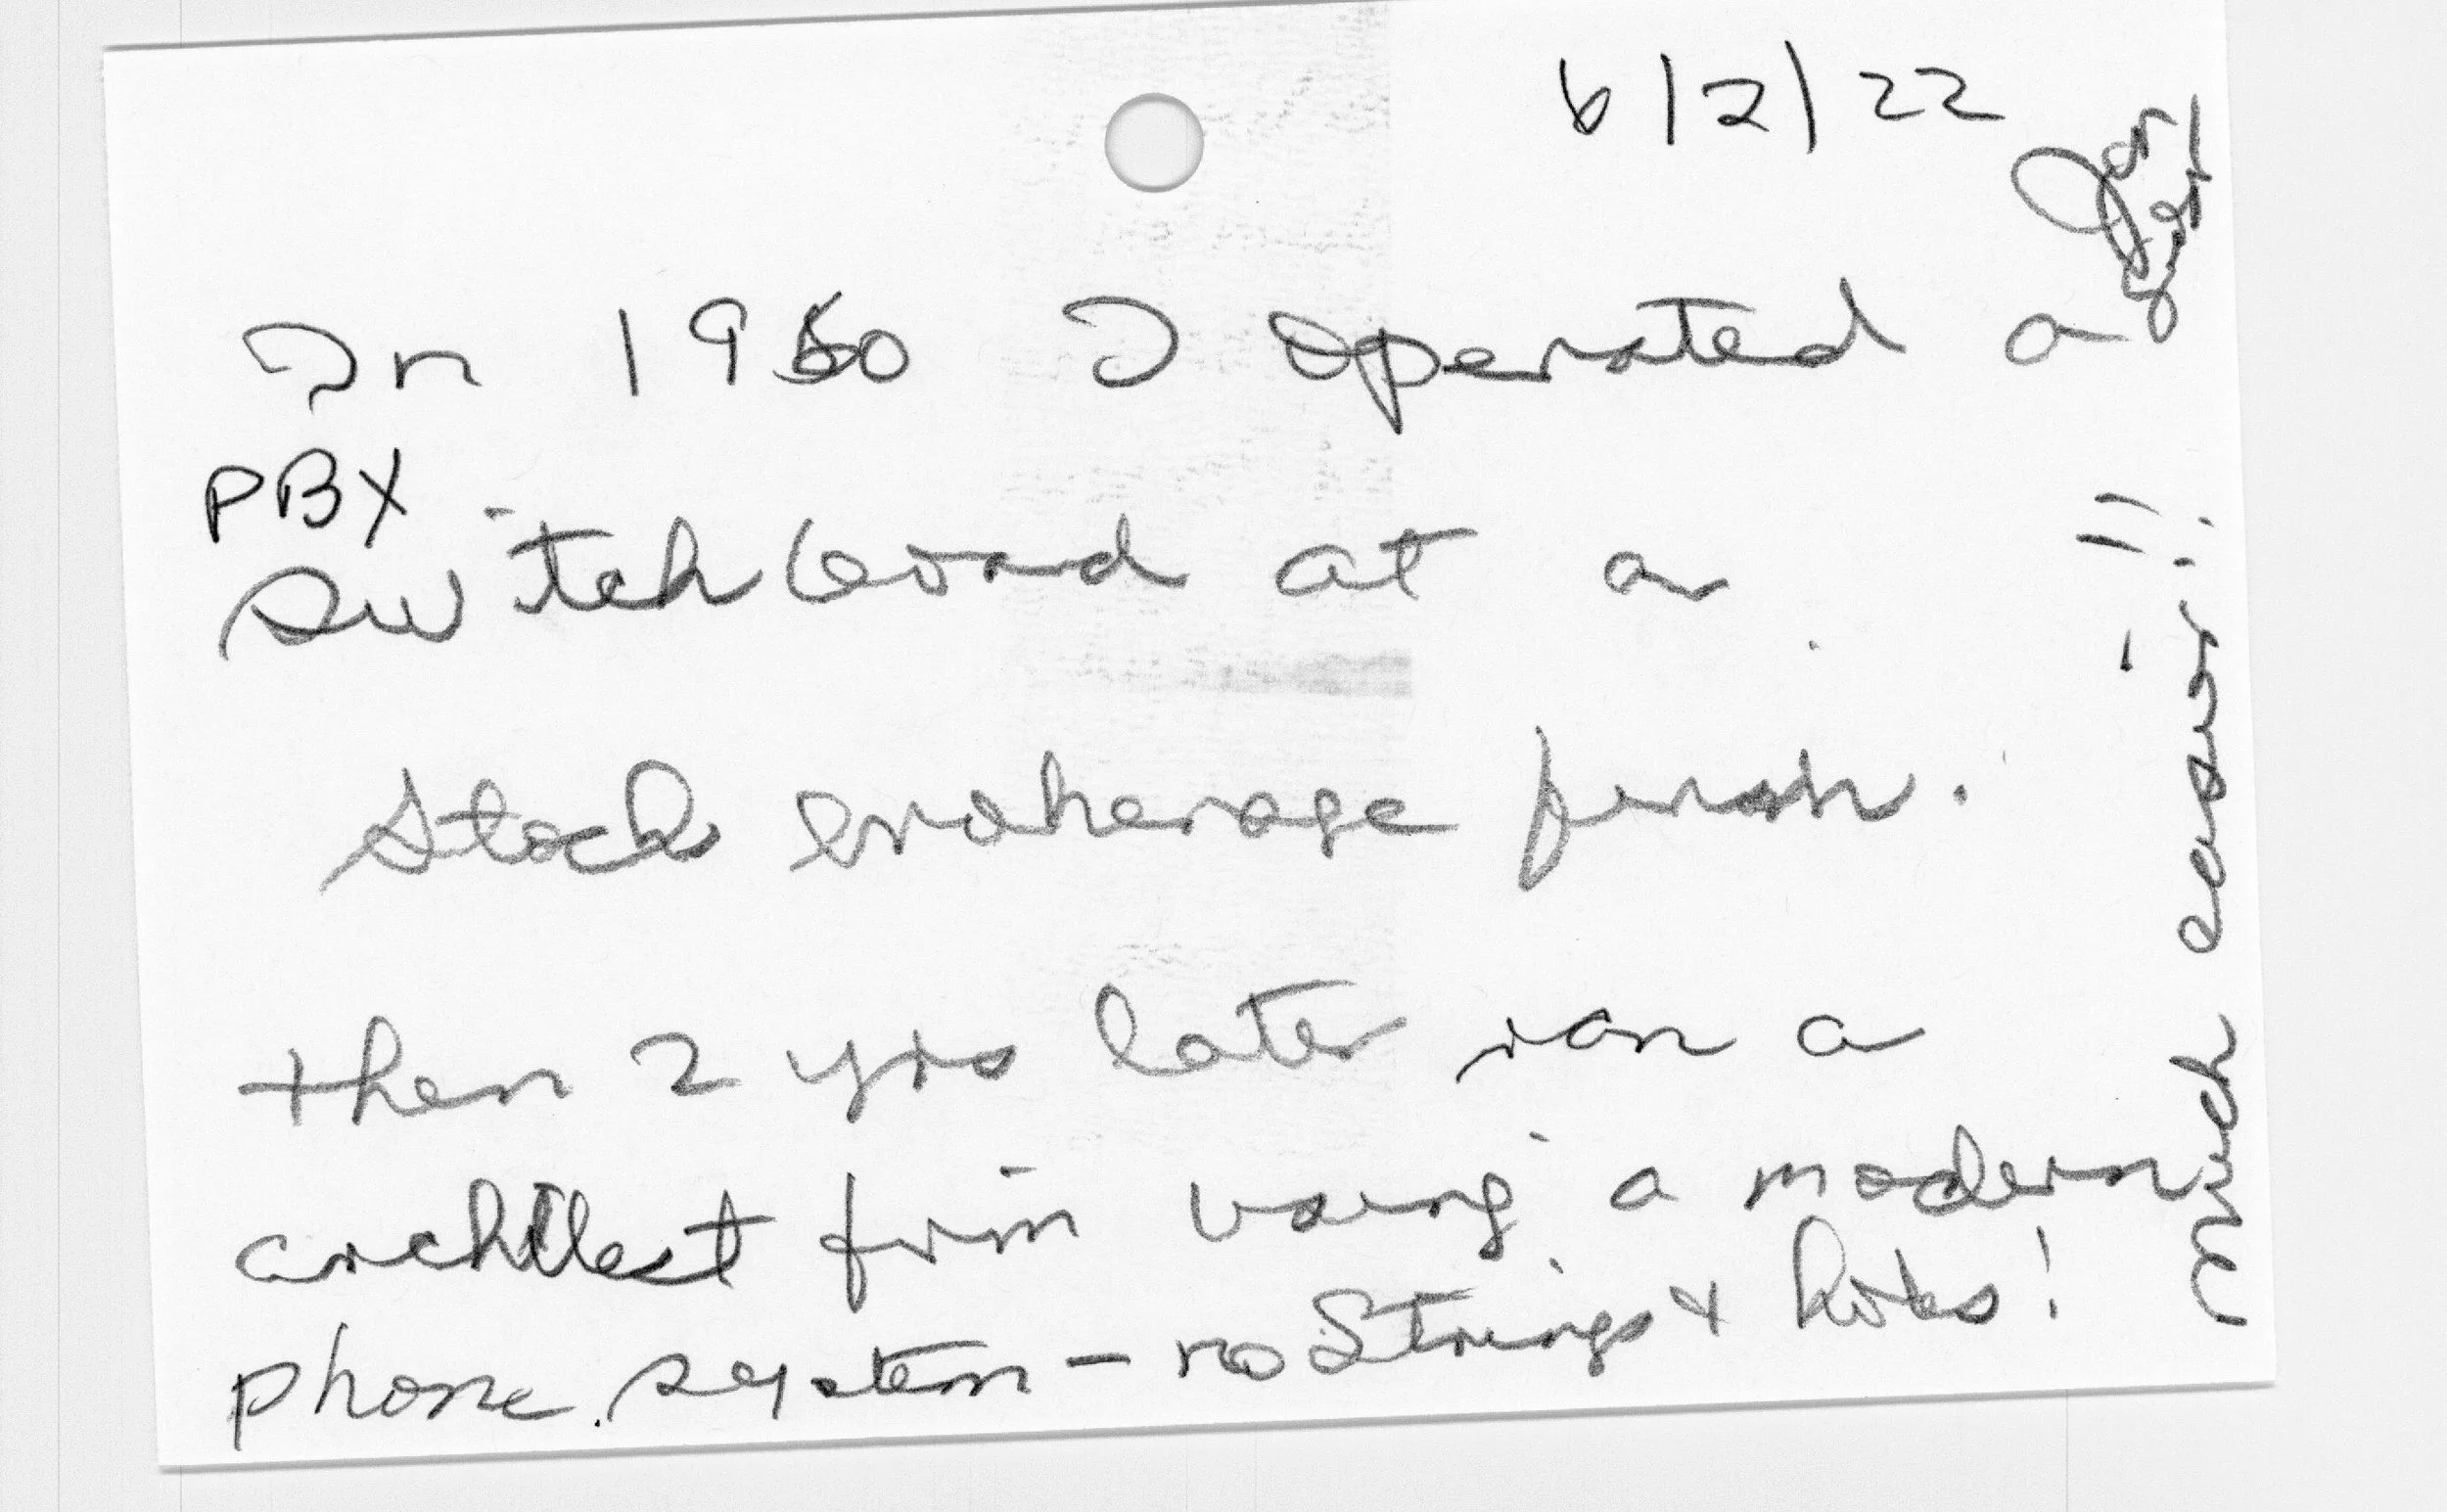 6/2/22
Jan
In 1960 I operated a
PBX
Switchboard at a
Stock brokerage firm.
then 2 yrs later ran a
architect firm using a modern
phone system - no Strings & holes!
Much easier!!